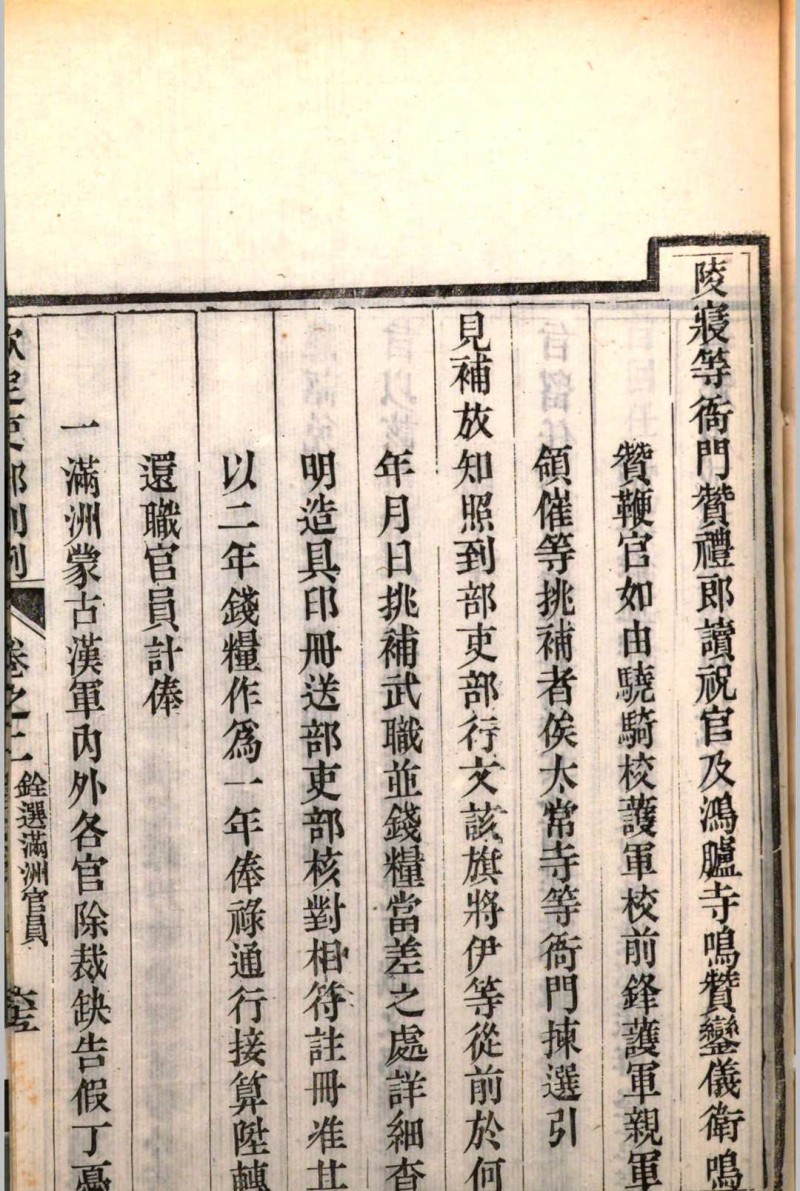 陵寢等衙門贊禮郎讀祝官及鴻臚寺鳴贊鑾儀衛鳴
贊鞭官如由驍騎校護軍校前鋒護軍親軍
領催等挑補者俟太常寺等衙門揀選引
見補放知照到部吏部行文該旗將伊等從前於何
年月日挑補武職並錢糧當差之處詳細查
明造具印冊送部吏部核對相符註冊准其
以二年錢糧作爲一年俸祿通行接算陞轉
還職官員計俸
一滿洲蒙古漢軍內外各官除裁缺告假丁憂
欽定吏部則例 卷之二 銓選滿洲官員